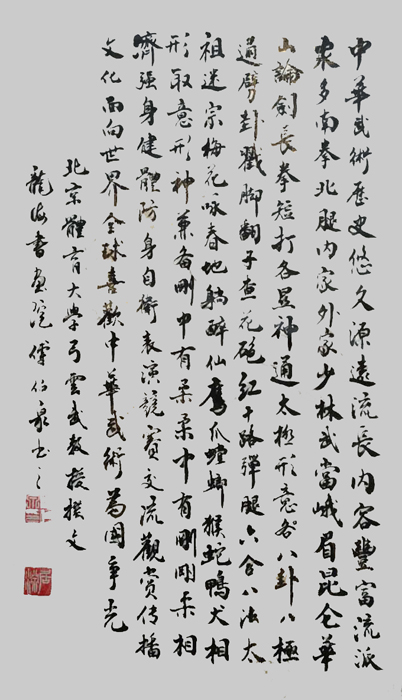 中華武術歷史悠久源遠流長内容豐富流派
衆多南拳北腿内家外家少林武當峨眉昆仑華
山論劍長拳短打各显神通太極形意答八卦八極
通劈卦戳脚翻子查花砲红十路彈腿六合八法太
祖迷宗梅花咏春地躺醉仙鹰爪螳螂猴蛇鴨犬相
形取意形神兼备剛中有柔柔中有剛剛柔相
濟强身健體防身自衛表演競賽交流觀赏传播
文化面向世界全球喜歡中華武術為國争光
北京體育大學弓雲武教授撰文
龍海書畫院傅伯泉书